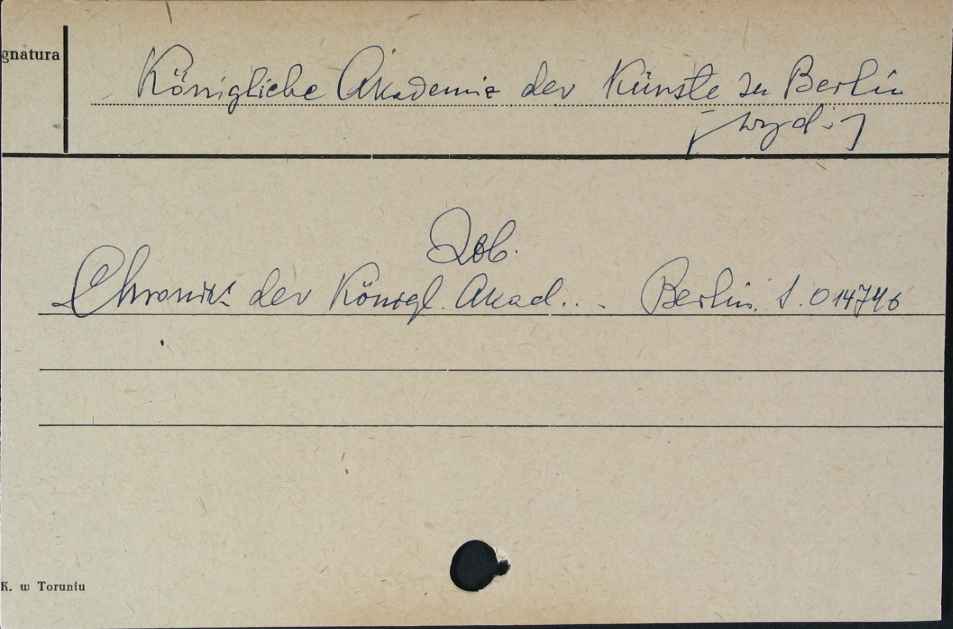 gnatura
Königliche Akademie der Künste zu Berlin
[wyd.]
Zob.
Chronik der Königl. Akad... Berlin. S. 014746
K. w Toruniu